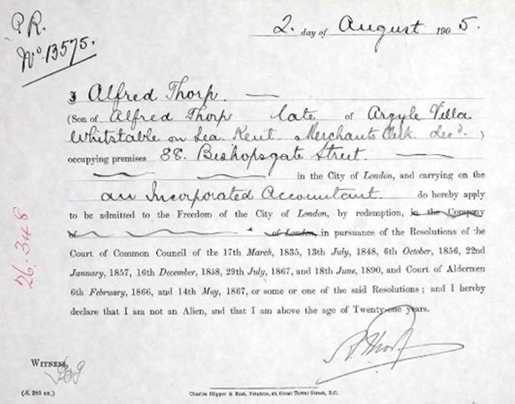 P.R.
No 13575.
2. day of August 1905.
I Alfred Thorp.
(Son of Alfred Thorp late of Argyle Villa
Whitstable on Sea Kent Merchants Clerk decd.)
occupying premises 88. Bishopsgate Street.
in the City of London, and carrying on the
an Incorporated Accountant. do hereby apply
to be admitted to the Freedom of the City of London, by redemption, in the Company
of London, in pursuance of the Resolutions of the
Court of Common Council of the 17th March, 1835, 13th July, 1848, 6th October, 1856, 22nd
January, 1857, 16th December, 1858, 29th July, 1867, and 18th June, 1890, and Court of Aldermen
6th February, 1866, and 14th May, 1867, or some or one of the said Resolutions; and I hereby
declare that I am not an Alien, and that I am above the age of Twenty-one years.
A Thorp
WITNESS,
Charles Skipper & East, Printers, 49, Great Tower Street, E.C.
26.348